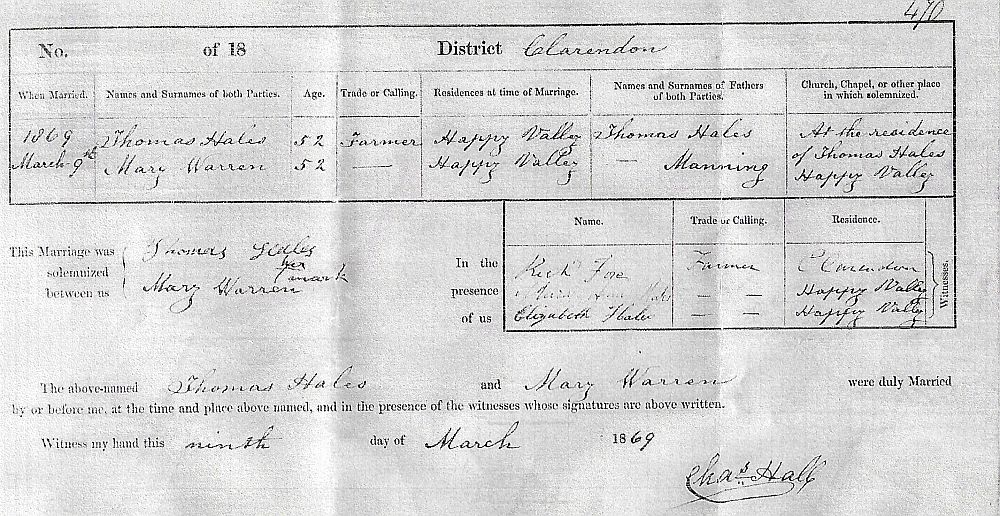 470
No. of 18 District Clarendon
When Married. Names and Surnames of both Parties. Age. Trade or Calling. Residences at time of Marriage. Names and Surnames of Fathers of both Parties. Church, Chapel, or other place in which solemnized.
1869 Thomas Hales 52 Farmer Happy Valley Thomas Hales At the residence
March 9th Mary Warren 52 — Happy Valley — Manning of Thomas Hales
Happy Valley
Name. Trade or Calling. Residence.
This Marriage was solemnized between us
Thomas Hales
her
Mary Warren mark
In the presence of us
Farmer Clarendon
— — Happy Valley
Elizabeth Hales — — Happy Valley
Witnesses.
The above-named Thomas Hales and Mary Warren were duly Married
by or before me, at the time and place above named, and in the presence of the witnesses whose signatures are above written.
Witness my hand this ninth day of March 1869
Chas Hall